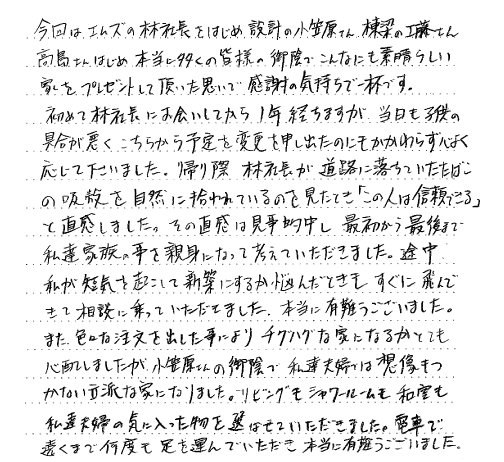 今回はエムズの林社長をはじめ、設計の小笠原さん、棟梁の工藤さん
高島さんはじめ、本当に多くの皆様の御陰でこんなにも素晴らしい
家をプレゼントして頂いた思いで感謝の気持ちで一杯です。
初めて林社長にお会いしてから1年経ちますが、当日も子供の
具合が悪く、こちらから予定を変更を申し出たのにもかかわらず心よく
応じて下さいました。帰り際、林社長が道路に落ちていたたばこ
の吸殻を自然に拾われているのを見たとき「この人は信頼できる」
と直感しました。その直感は見事的中し、最初から最後まで
私達家族の事を親身になって考えていただきました。途中
私が短気を起こして新築にするか悩んだときも、すぐに飛んで
きて相談に乗っていただきました。本当に有難うございました。
また、色々な注文を出した事によりチグハグな家になるかとても
心配しましたが、小笠原さんの御陰で、私達夫婦では想像もつ
かない立派な家になりました。リビングもシャワールームも和室も
私達夫婦の気に入った物を選ばせていただきました。電車で
遠くまで何度も足を運んでいただき本当に有難うございました。